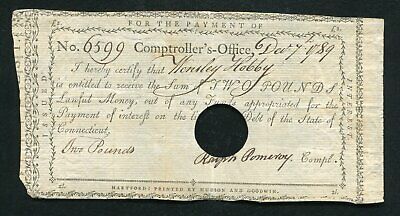 FOR THE PAYMENT OF
£2. £2.
No. 6599 Comptroller's-Office, Decr 7 1789
I hereby certify that Wensley Hobby
is entitled to receive the Sum of TWO POUNDS
Lawful Money, out of any Funds appropriated for the
Payment of interest on the Debt of the State of
Connecticut,
Two Pounds
Ralph Pomeroy, Compt.
INTEREST.
2l. HARTFORD: PRINTED BY HUDSON AND GOODWIN. 2l.